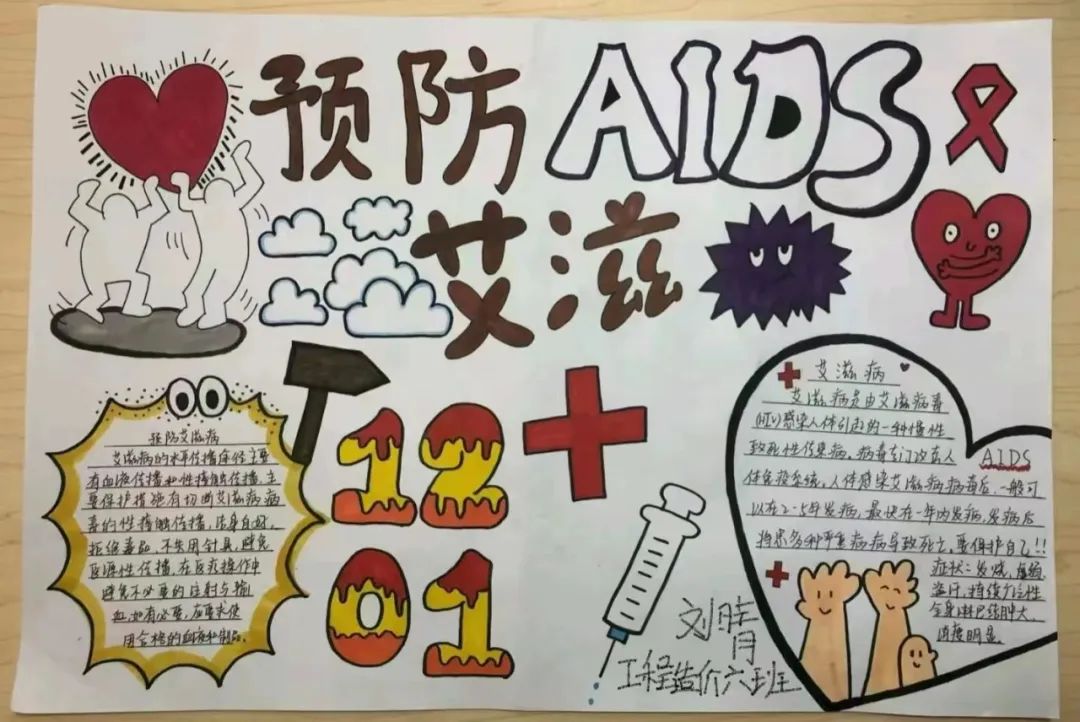 预防AIDS
艾滋
预防艾滋病
艾滋病的水平传播途径主要
有血液传播和性接触传播,主
要保护措施有切断艾滋病病
毒的性接触传播,洁身自好,
拒绝毒品,不共用针具,避免
医源性传播,在医疗操作中
避免不必要的注射与输
血,如有必要,应要求使
用合格的血液和制品。
12
01
刘晴
工程造价六班
艾滋病
艾滋病是由艾滋病毒
(HIV)感染人体引起的一种慢性
致死性传染病,病毒专门攻击人
体免疫系统,人体感染艾滋病病毒后,一般可
以在2-5年发病,最快在一年内发病,发病后
将患多种严重疾病导致死亡,要保护自己!!
AIDS
症状:发烧,
盗汗,持续广泛性
全身淋巴结肿大,
消瘦明显